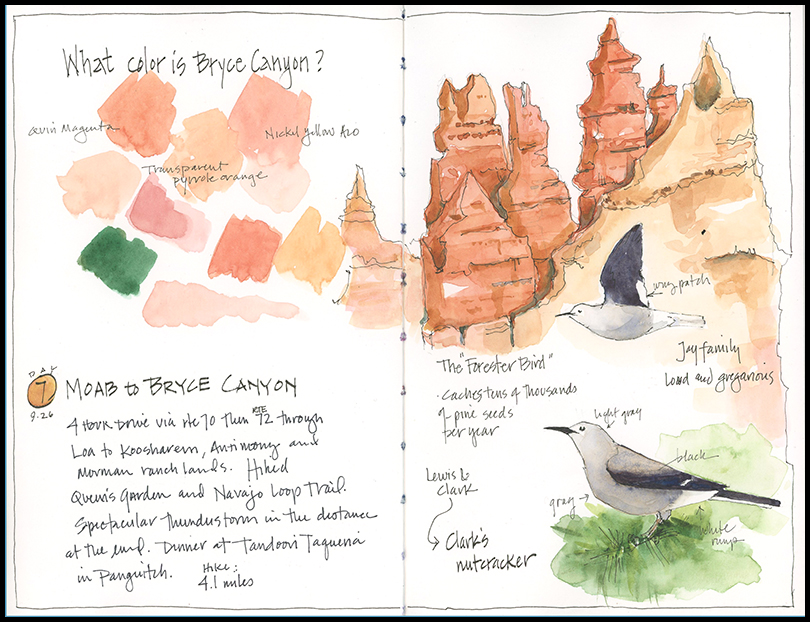 What color is Bryce Canyon?
Quin Magenta
Nickel yellow Azo
Transparent
pyrrole orange
wing patch
Jay family
Loud and gregarious
The "Forester Bird"
· caches tens of thousands
of pine seeds
per year
light gray
black
gray
white
rump
Lewis &
Clark
Clark's
nutcracker
DAY
7
9.26
MOAB to BRYCE CANYON
4 hour drive via Rte 70 then RTE 72 through
Loa to Koosharem, Antimony and
Morman ranch lands. Hiked
Queens Garden and Navajo Loop Trail.
Spectacular thunderstorm in the distance
at the end. Dinner at Tandoori Taqueria
in Panguitch.
Hike:
4.1 miles